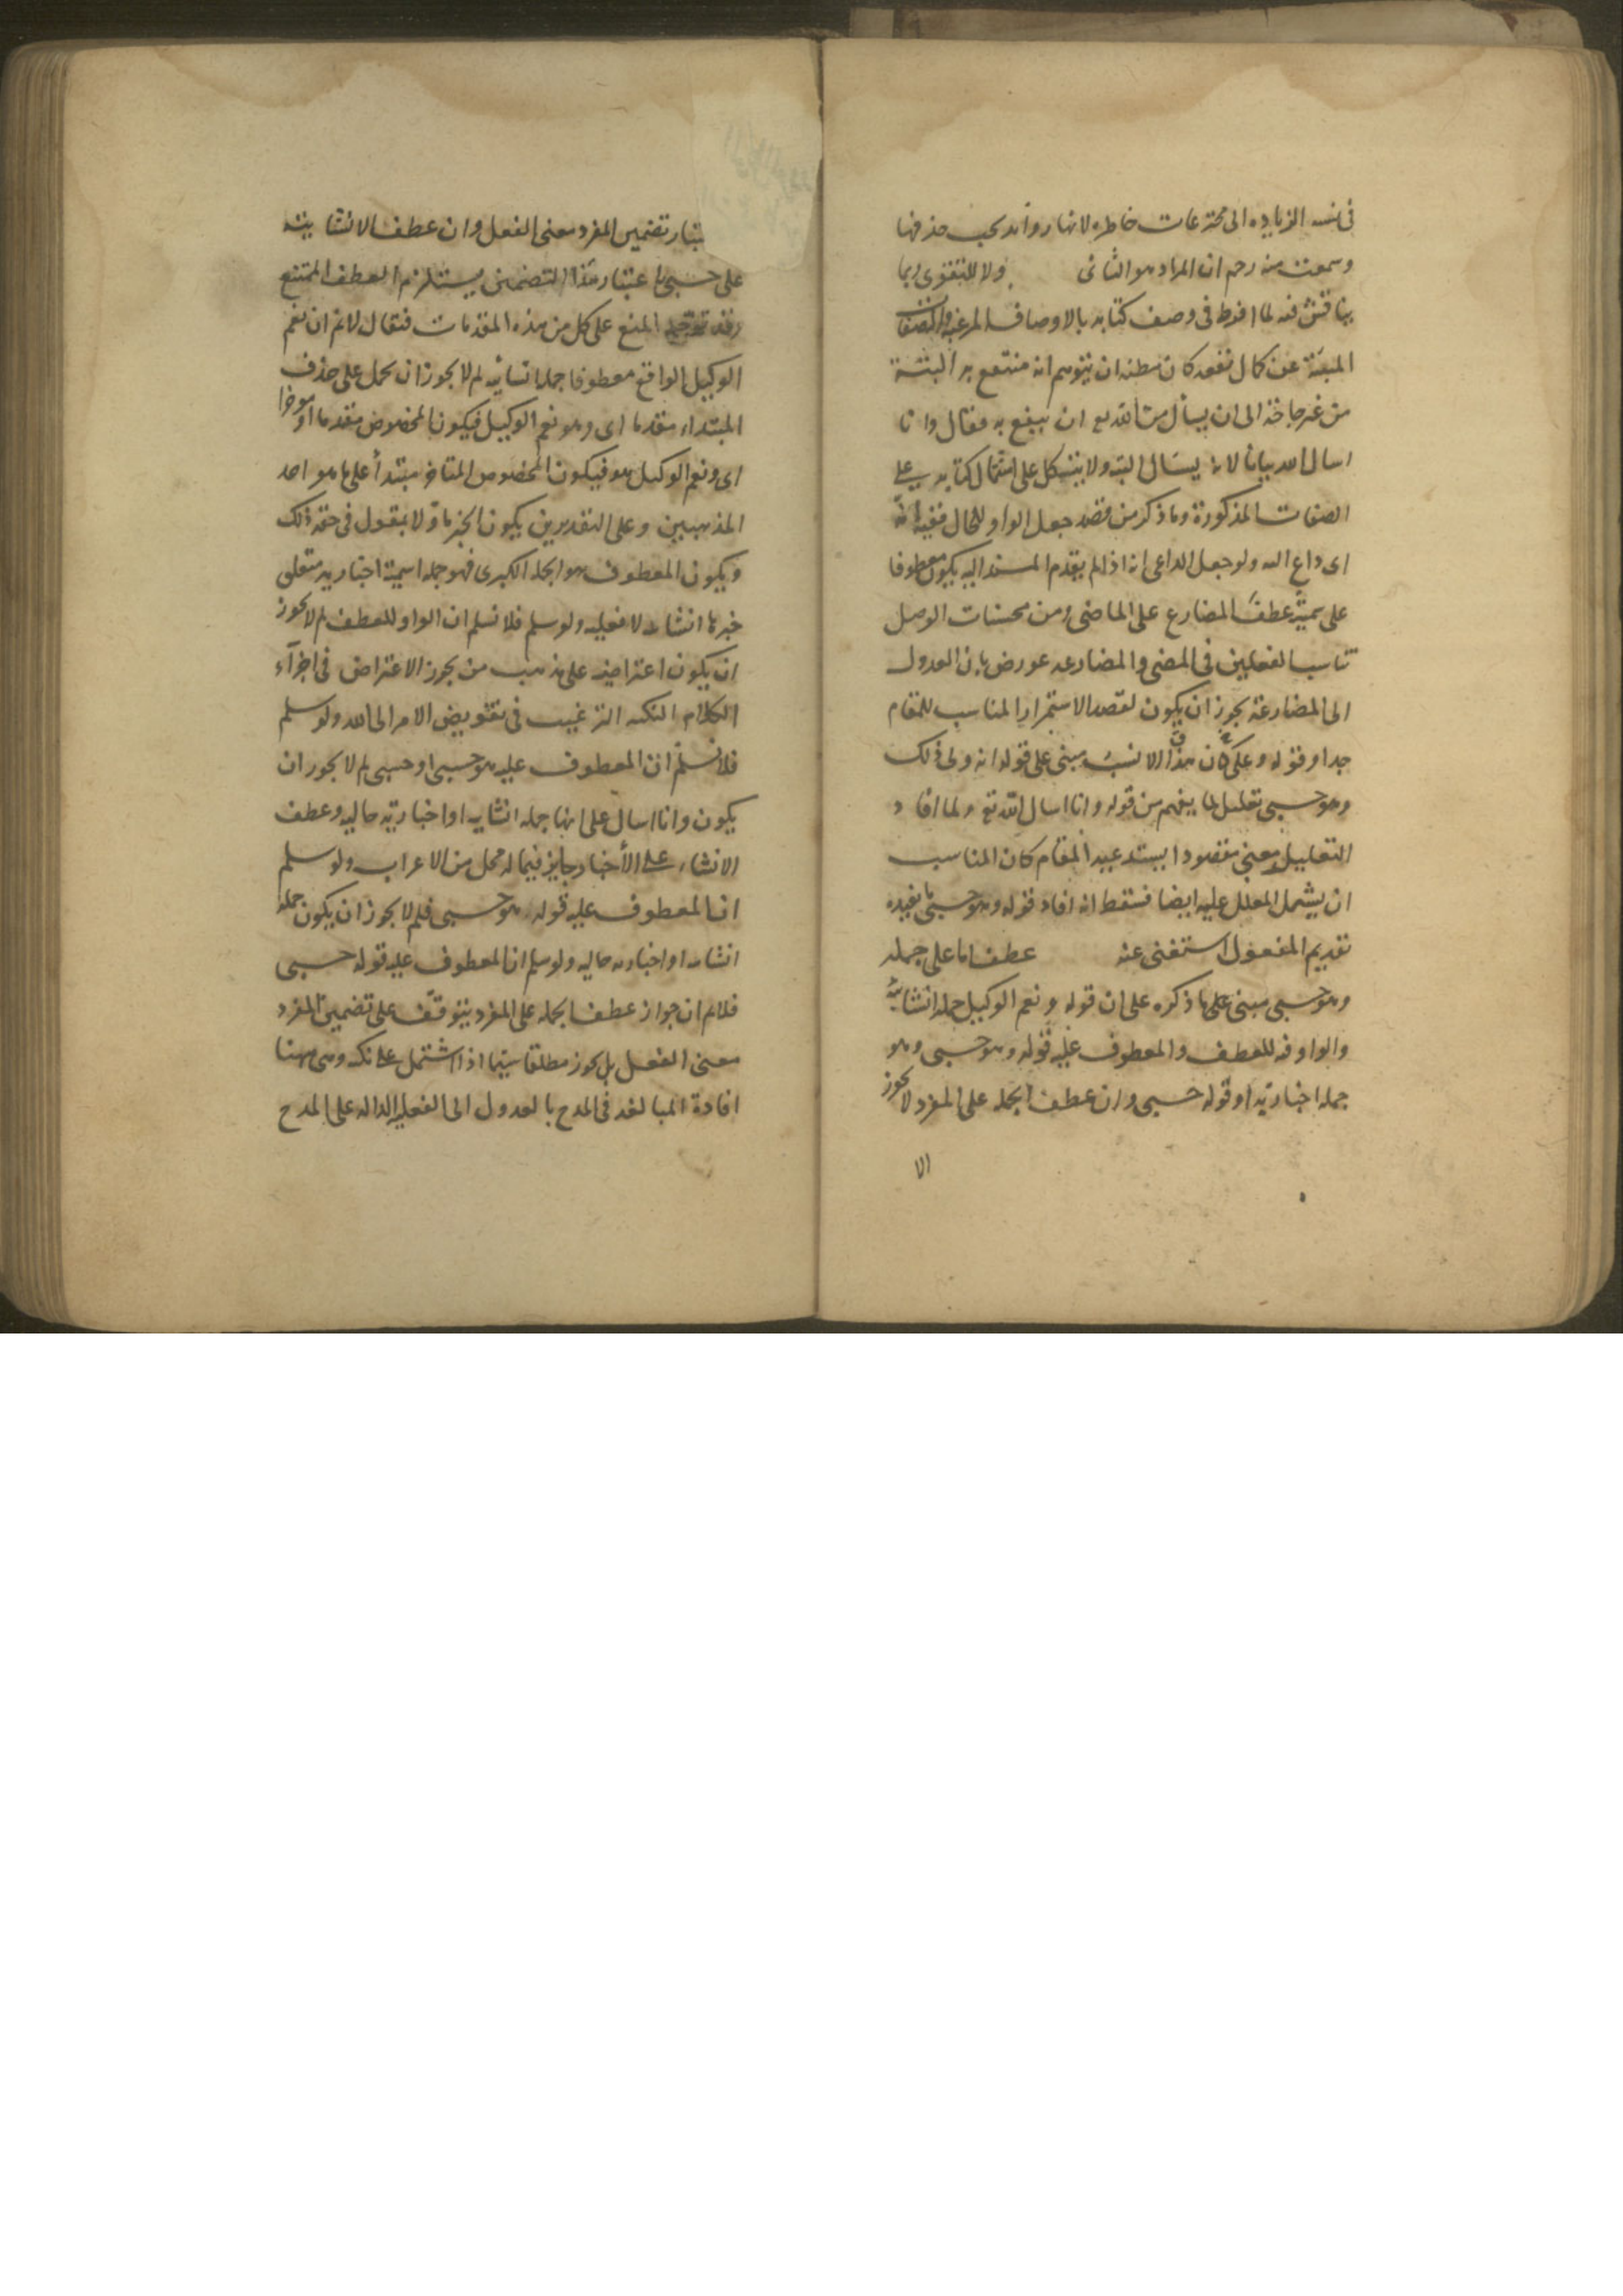 في نسبة الزياده الى مخترعات خاطره لانها زوائد يجب حذفها
وسمعت منه رحمه ان المراد هو الثانى ولا للتقوى ربما
يناقش فيه لما افرط فى وصف كتابه بالاوصاف المرغبة والصفات
المبينة عن كمال نفعه كان مظنه ان يتوهم انه منتفع به البتة
من غير حاجة الى ان يسأل من الله تع ان ينفع به فقال وانا
اسال الله بيانا لانه يسئال البته ولا يتكل على اشتمال كتابه على
الصفات المذكورة وما ذكر من قصد جعل الواو للحال ففيه انه
اى داع اليه ولو جعل الداعى انه اذا لم يقدم المسند اليه يكون معطوفا
على سميته عطف المضارع على الماضى ومن محسنات الوصل
تناسب الفعلين فى المضى والمضارعه عورض بان العدول
الى المضارعة يجوز ان يكون لقصد الاستمرار المناسب للمقام
جدا وقوله وعلى كان هذا الانسب مبنى على قوله انه ولى ذلك
وهو حسبى تعليل لما يفهم من قوله وانا اسال الله تع ولما افاد
التعليل معنى مقصودا يستدعيه المقام كان المناسب
ان يشمل المعلل عليه ايضا فسقط انه افاد قوله وهو حسبى ما يفيده
تقديم المفعول استغنى عنه عطف اما على جمله
وهو حسبى مبنى على ما ذكره على ان قوله و نعم الوكيل جمله انشائية
والواو فيه للعطف والمعطوف عليه قوله وهو حسبى وهو
جمله اخبارية او قوله حسبى وان عطف الجمله على المفرد لا يجوز
الا
بتبار تضمين المفرد معنى الفعل وان عطف الانشائية
على حسبى باعتبار هذا التضمين يستلزم العطف الممتنع
وقد توجه المنع على كل من هذه المقدمات فيقال لانم ان نعم
الوكيل الواقع معطوفا جمله انشائيه لم لا يجوز ان يحمل على حذف
المبتداء مقدما اى وهو نعم الوكيل فيكون المخصوص مقدما او موخرا
اى ونعم الوكيل هو فيكون المخصوص المتاخر مبتدأ على ما هو احد
المذهبين وعلى التقديرين يكون الخبر ماوّلا بمقول فى حقه ذلك
ويكون المعطوف هو الجمله الكبرى فهو جمله اسمية اخباريه متعلق
خبرها انشاء لا فعليه ولو سلم فلا نسلم ان الواو للعطف لم لا يجوز
ان يكون اعتراضيه على مذهب من يجوز الاعتراض فى اخرآء
الكلام النكته الترغيب فى تفويض الامر الى الله ولو سلم
فلا نسلم ان المعطوف عليه هو حسبى او حسبى لم لا يجوز ان
يكون وانا اسال على انها جمله انشايه او اخبارية حاليه وعطف
الانشاء على الأخبار جايز فيما له محل من الاعراب ولو سلم
ان المعطوف عليه قوله وهو حسبى فلم لا يجوز ان يكون جمله
انشاىه او اخباريه حاليه ولو سلم ان المعطوف عليه قوله حسبى
فلانم ان جواز عطف الجمله على المفرد يتوقف على تضمين المفرد
معنى الفعل بل يجوز مطلقا سيّما اذا اشتمل على نكته وهى ههنا
افادة المبالغه فى المدح بالعدول الى الفعليه الداله على المدح